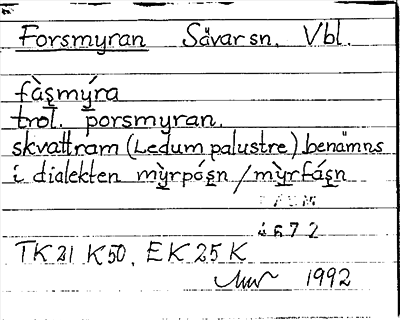 Forsmyran Sävar sn. Vbl.
fàṣmýra
trol. porsmyran.
skvattram (Ledum palustre) benämns
i dialekten mỳrpóṣn / mỳrfáṣn
4672
TK 21 K 50, EK 25 K
1992